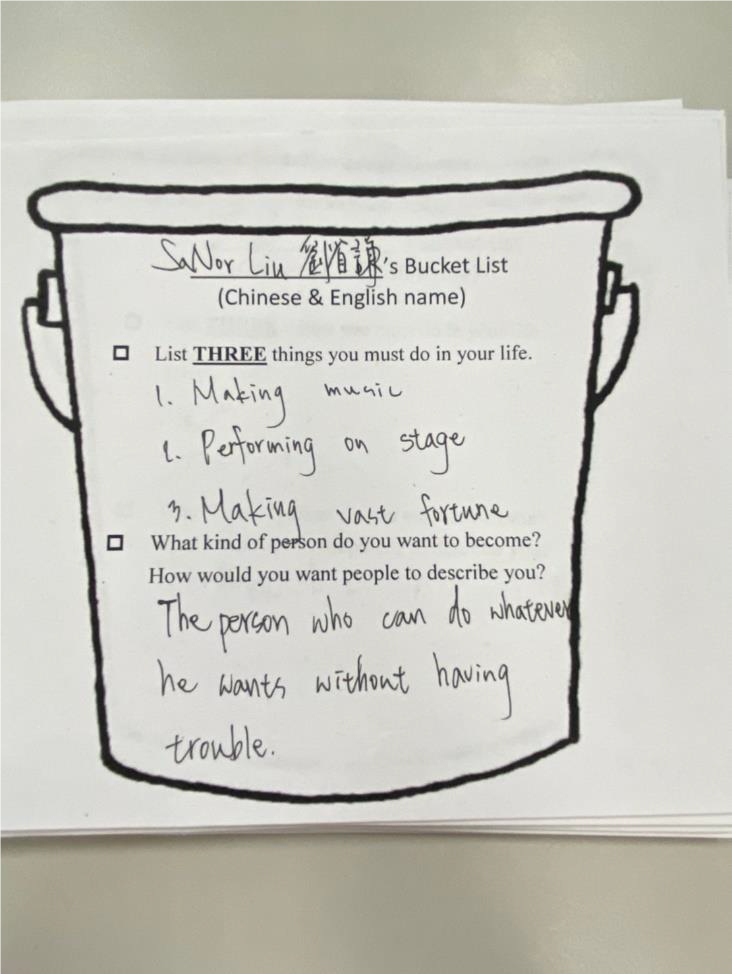 SaNor Liu 劉省謙's Bucket List
(Chinese & English name)
List THREE things you must do in your life.
1. Making music
2. Performing on stage
3. Making vast fortune
What kind of person do you want to become?
How would you want people to describe you?
The person who can do whatever
he wants without having
trouble.